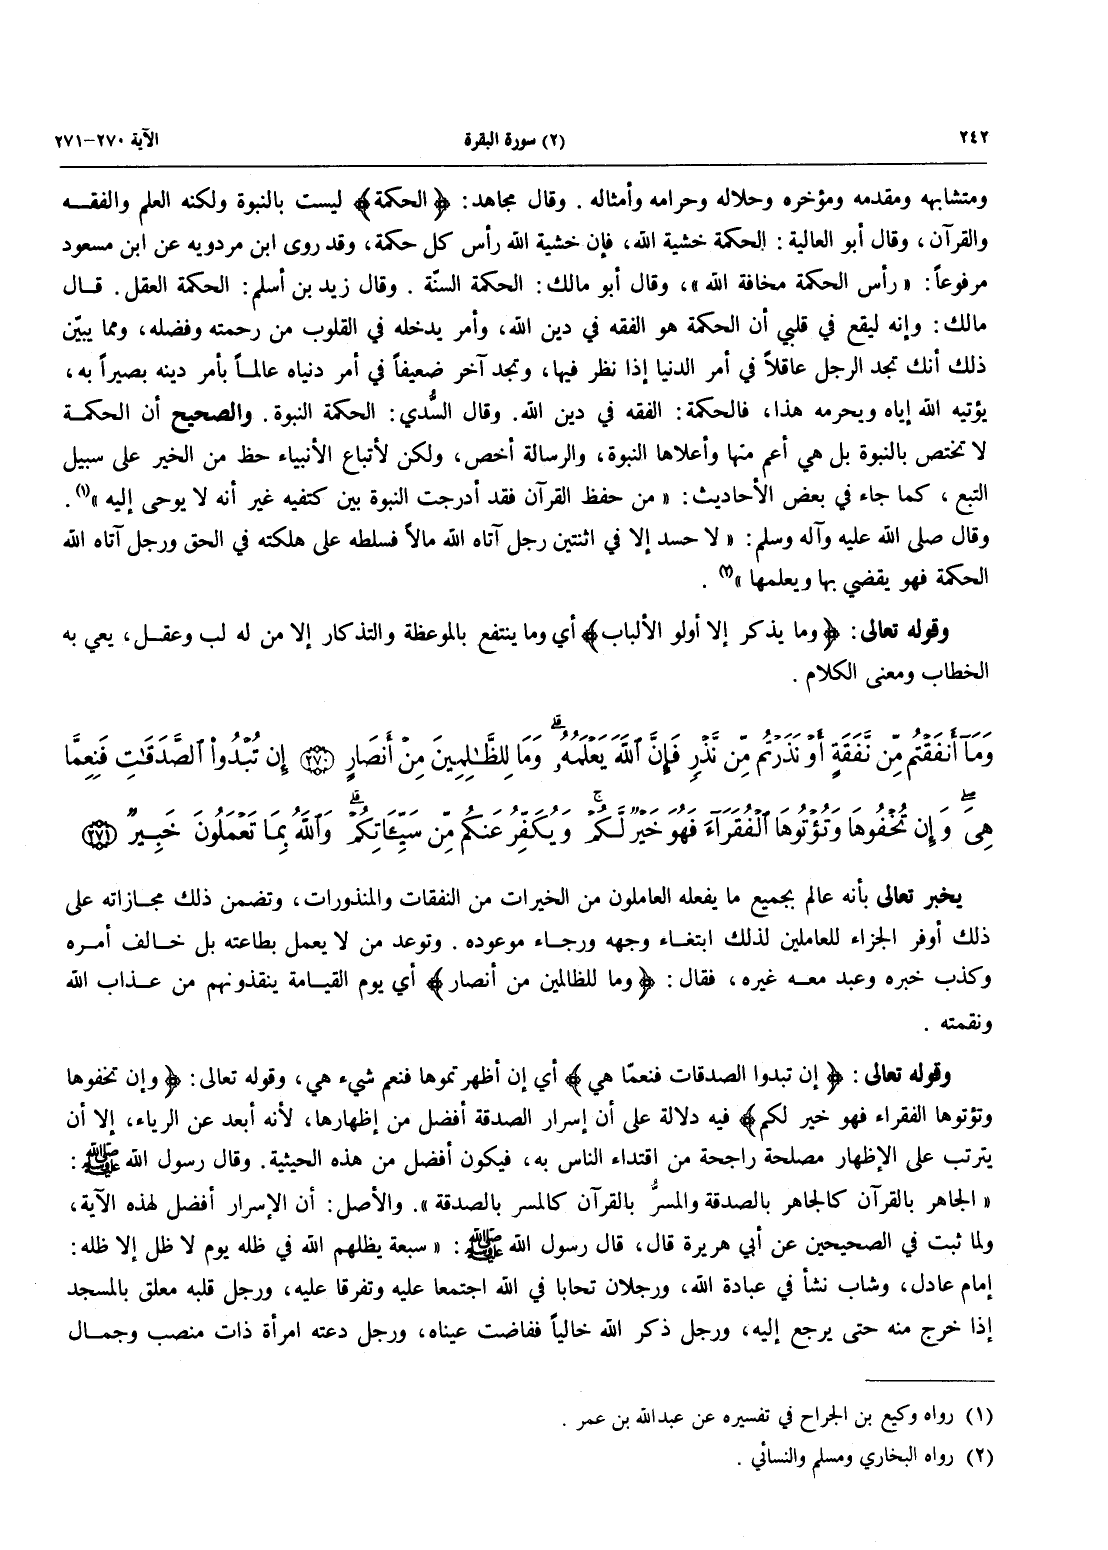 ٢٤٢ (٢) سورة البقرة الآية ٢٧٠-٢٧١
ومتشابهه ومقدمه ومؤخره وحلاله وحرامه وأمثاله . وقال مجاهد: ﴿ الحكمة ﴾ ليست بالنبوة ولكنه العلم والفقــه
والقرآن ، وقال أبو العالية : الحكمة خشية الله، فإن خشية الله رأس كل حكمة، وقد روى ابن مردويه عن ابن مسعود
مرفوعاً: « رأس الحكمة مخافة الله »، وقال أبو مالك: الحكمة السنّة . وقال زيد بن أسلم: الحكمة العقل. قــال
مالك: وإنه ليقع في قلبي أن الحكمة هو الفقه في دين الله، وأمر يدخله في القلوب من رحمته وفضله، ومما يبيّن
ذلك أنك تجد الرجل عاقلاً في أمر الدنيا إذا نظر فيها، وتجد آخر ضعيفاً في أمر دنياه عالمـاً بأمر دينه بصيراً به ،
يؤتيه الله إياه ويحرمه هذا، فالحكمة: الفقه في دين الله. وقال السُّدي: الحكمة النبوة. والصحيح أن الحكمــة
لا تختص بالنبوة بل هي أعم منها وأعلاها النبوة، والرسالة أخص، ولكن لأتباع الأنبياء حظ من الخير على سبيل
التبع ، كما جاء في بعض الأحاديث: « من حفظ القرآن فقد أدرجت النبوة بين كتفيه غير أنه لا يوحى إليه »(١).
وقال صلى الله عليه وآله وسلم: « لا حسد إلا في اثنتين رجل آتاه الله مالاً فسلطه على هلكته في الحق ورجل آتاه الله
الحكمة فهو يقضي بها ويعلمها »(٢) .
وقوله تعالى: ﴿ وما يذكر إلا أولو الألباب ﴾ أي وما ينتفع بالموعظة والتذكار إلا من له لب وعقــل، يعي به
الخطاب ومعنى الكلام .
وَمَآ أَنفَقْتُم مِّن نَّفَقَةٍ أَوْ نَذَرْتُم مِّن نَّذْرٍ فَإِنَّ ٱللَّهَ يَعْلَمُهُۥ ۗ وَمَا لِلظَّـٰلِمِينَ مِنْ أَنصَارٍ ٢٧٠ إِن تُبْدُوا۟ ٱلصَّدَقَـٰتِ فَنِعِمَّا
هِىَ ۖ وَإِن تُخْفُوهَا وَتُؤْتُوهَا ٱلْفُقَرَآءَ فَهُوَ خَيْرٌ لَّكُمْ ۚ وَيُكَفِّرُ عَنكُم مِّن سَيِّـَٔاتِكُمْ ۗ وَٱللَّهُ بِمَا تَعْمَلُونَ خَبِيرٌ ٢٧١
يخبر تعالى بأنه عالم بجميع ما يفعله العاملون من الخيرات من النفقات والمنذورات، وتضمن ذلك مجــازاته على
ذلك أوفر الجزاء للعاملين لذلك ابتغــاء وجهه ورجــاء موعوده . وتوعد من لا يعمل بطاعته بل خــالف أمــره
وكذب خبره وعبد معــه غيره، فقال: ﴿ وما للظالمين من أنصار ﴾ أي يوم القيــامة ينقذونهم من عــذاب الله
ونقمته .
وقوله تعالى : ﴿ إن تبدوا الصدقات فنعمّا هي ﴾ أي إن أظهرتموها فنعم شيء هي، وقوله تعالى: ﴿ وإن تخفوها
وتؤتوها الفقراء فهو خير لكم ﴾ فيه دلالة على أن إسرار الصدقة أفضل من إظهارها، لأنه أبعد عن الرياء، إلا أن
يترتب على الإظهار مصلحة راجحة من اقتداء الناس به، فيكون أفضل من هذه الحيثية. وقال رسول الله ﷺ :
« الجاهر بالقرآن كالجاهر بالصدقة والمسرُّ بالقرآن كالمسر بالصدقة ». والأصل: أن الإسرار أفضل لهذه الآية،
ولما ثبت في الصحيحين عن أبي هريرة قال، قال رسول الله ﷺ : « سبعة يظلهم الله في ظله يوم لا ظل إلا ظله:
إمام عادل، وشاب نشأ في عبادة الله، ورجلان تحابا في الله اجتمعا عليه وتفرقا عليه، ورجل قلبه معلق بالمسجد
إذا خرج منه حتى يرجع إليه، ورجل ذكر الله خالياً ففاضت عيناه، ورجل دعته امرأة ذات منصب وجمــال
(١) رواه وكيع بن الجراح في تفسيره عن عبدالله بن عمر .
(٢) رواه البخاري ومسلم والنسائي .